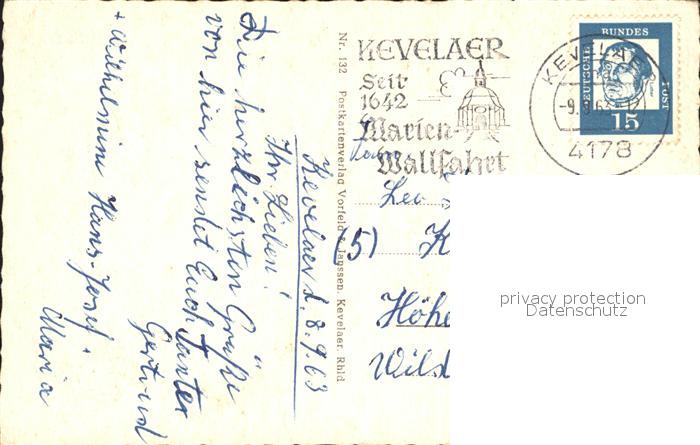 Kevelaer d. 8.9.63
Ihr Lieben!
Die herzlichsten Grüße
von hier sendet Euch Tante
Gertrud
+ Wilhelmine Hans-Josef.
Maria
Nr. 132 Postkartenverlag Vorfeld & Janssen, Kevelaer, Rhld
KEVELAER
Seit
1642
Marien-
Wallfahrt
KEVELAER
-9.9.63-12
4178
DEUTSCHE BUNDESPOST
15
Fam.
Leo
(5) K
Höhe
Wild
privacy protection
Datenschutz